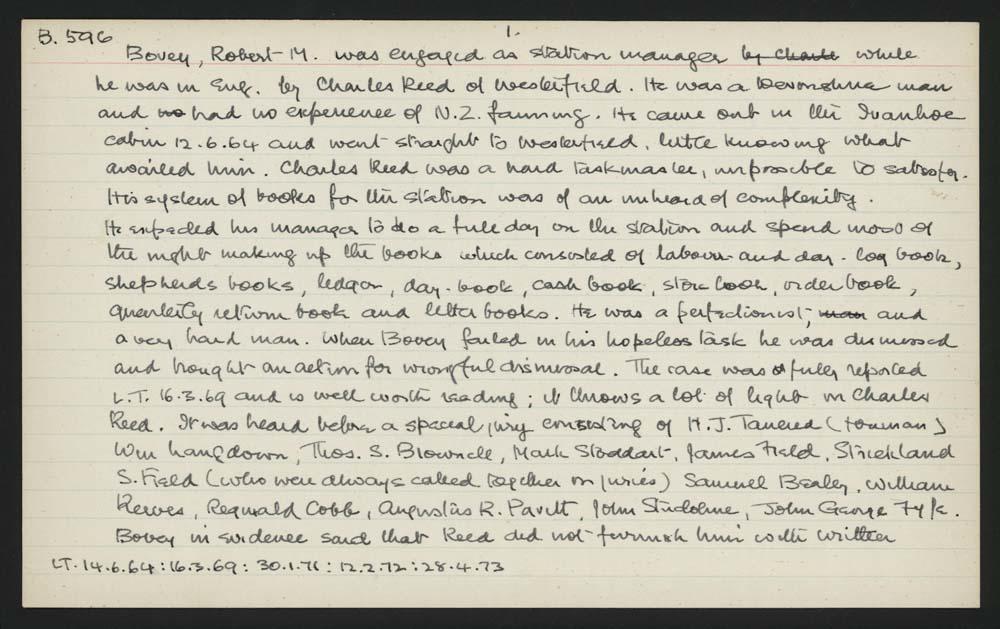 B. 596
1.
Bovey, Robert M. was engaged as station manager by Charle while
he was in Eng. by Charles Reed of Westerfield. He was a Devonshire man
and no had no experience of N.Z. farming. He came out in the Ivanhoe
cabin 12.6.64 and went straight to Westerfield, little knowing what
awaited him. Charles Reed was a hard taskmaster, impossible to satisfy.
His system of books for the station was of an unheard of complexity.
He expected his manager to do a full day on the station and spend most of
the night making up the books which consisted of labour and day-log book,
shepherds books, ledger, day-book, cash book, store book, order book,
quarterly return book and letter books. He was a perfectionist, man and
a very hard man. When Bovey failed in his hopeless task he was dismissed
and brought an action for wrongful dismissal. The case was fully reported
L.T. 16.3.69 and is well worth reading; it throws a lot of light on Charles
Reed. It was heard before a special jury consisting of H.J. Tancred (foreman)
Wm Langdown, Thos. S. Brownell, Mark Stoddart, James Field, Strickland
S. Field (who were always called together on juries) Samuel Bealey, William
Reeves, Reginald Cobb, Augustus R. Pavitt, John Studolme, John George Fyfe.
Bovey in evidence said that Reed did not furnish him with written
LT. 14.6.64: 16.3.69: 30.1.71: 12.2.72: 28.4.73